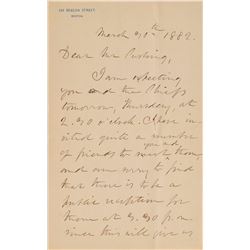 BOSTON.
March 30th 1882.
Dear Mr Cushing,
I am expecting
you and the Chiefs
tomorrow, Thursday, at
2.30 o'clock. I have in-
vited quite a number
of friends to meet you and them,
and am sorry to find
that there is to be a
public reception for
them at 3.30 p.m.
since this will give us